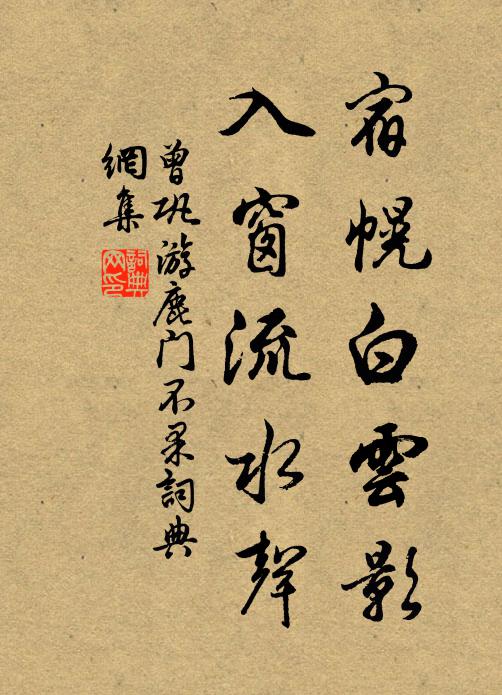 宿幌白雲影
入窗流水聲
曾巩游鹿门不果詞典
網集
詞典網印